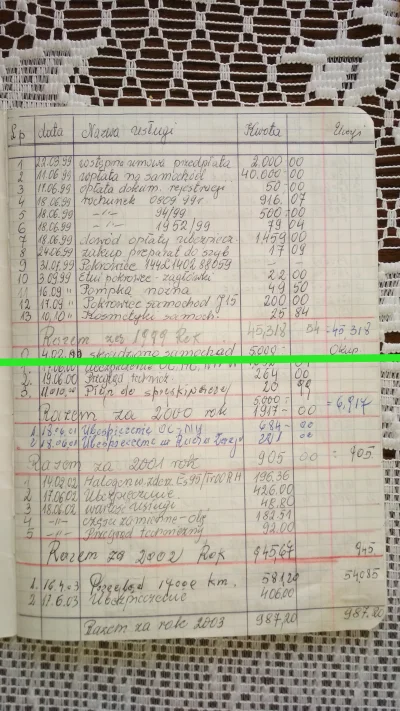 Lp data Nazwa usługi Kwota Uwagi
1 22.03.99 wstępna umowa przedpłata 2.000 00
2 11.06.99 wpłata na samochód 40.000 00
3 17.06.99 opłata dokum. rejestracji 50 00
4 18.06.99 rachunek 0809 99r 916 07
5 18.06.99 -"- 94/99 500 00
6 18.06.99 -"- 1952/99 79 04
7 18.06.99 dowód opłaty ubezpiecz. 1.459 00
8 24.06.99 zakup preparat do szyb 17 09
9 31.07.99 Pokrowiec
10 5.09.99 pokrowiec - zagłówki 22 00
11 16.09 " Pompka nożna 49 50
12 17.09 " Pokrowiec samochod 200 00
13 10.10 " Kosmetyki samoch. 25 84
Razem za 1999 Rok 45,318 04 = 45 318
4.02. skradziono samochód 5000
2. 19.06.00 Przegląd 264 00
3. Płyn do spryskiwaczy 20 99
5000
Razem za 2000 rok 1917 00 = 6,917
1. 18.06.01 Ubezpieczenie OC, NW 684 00
2. 18.06.01 Ubezpieczenie 221 00
Razem za 2001 rok 905 00 = 905
1 14.02.02 196,36
2 17.06.02 Ubezpieczenie 426.00
3 18.06.02 wartość usługi 48.80
4 -"- części zamienne - olej 182.51
5 -"- Przegląd 92.00
Razem za 2002 Rok 945,67 945
1. 16.4.03 Przegląd 14000 km. 581,20 54085
2 17.6.03 Ubezpieczenie 406.00
Razem za rok 2003 987,20 987,20